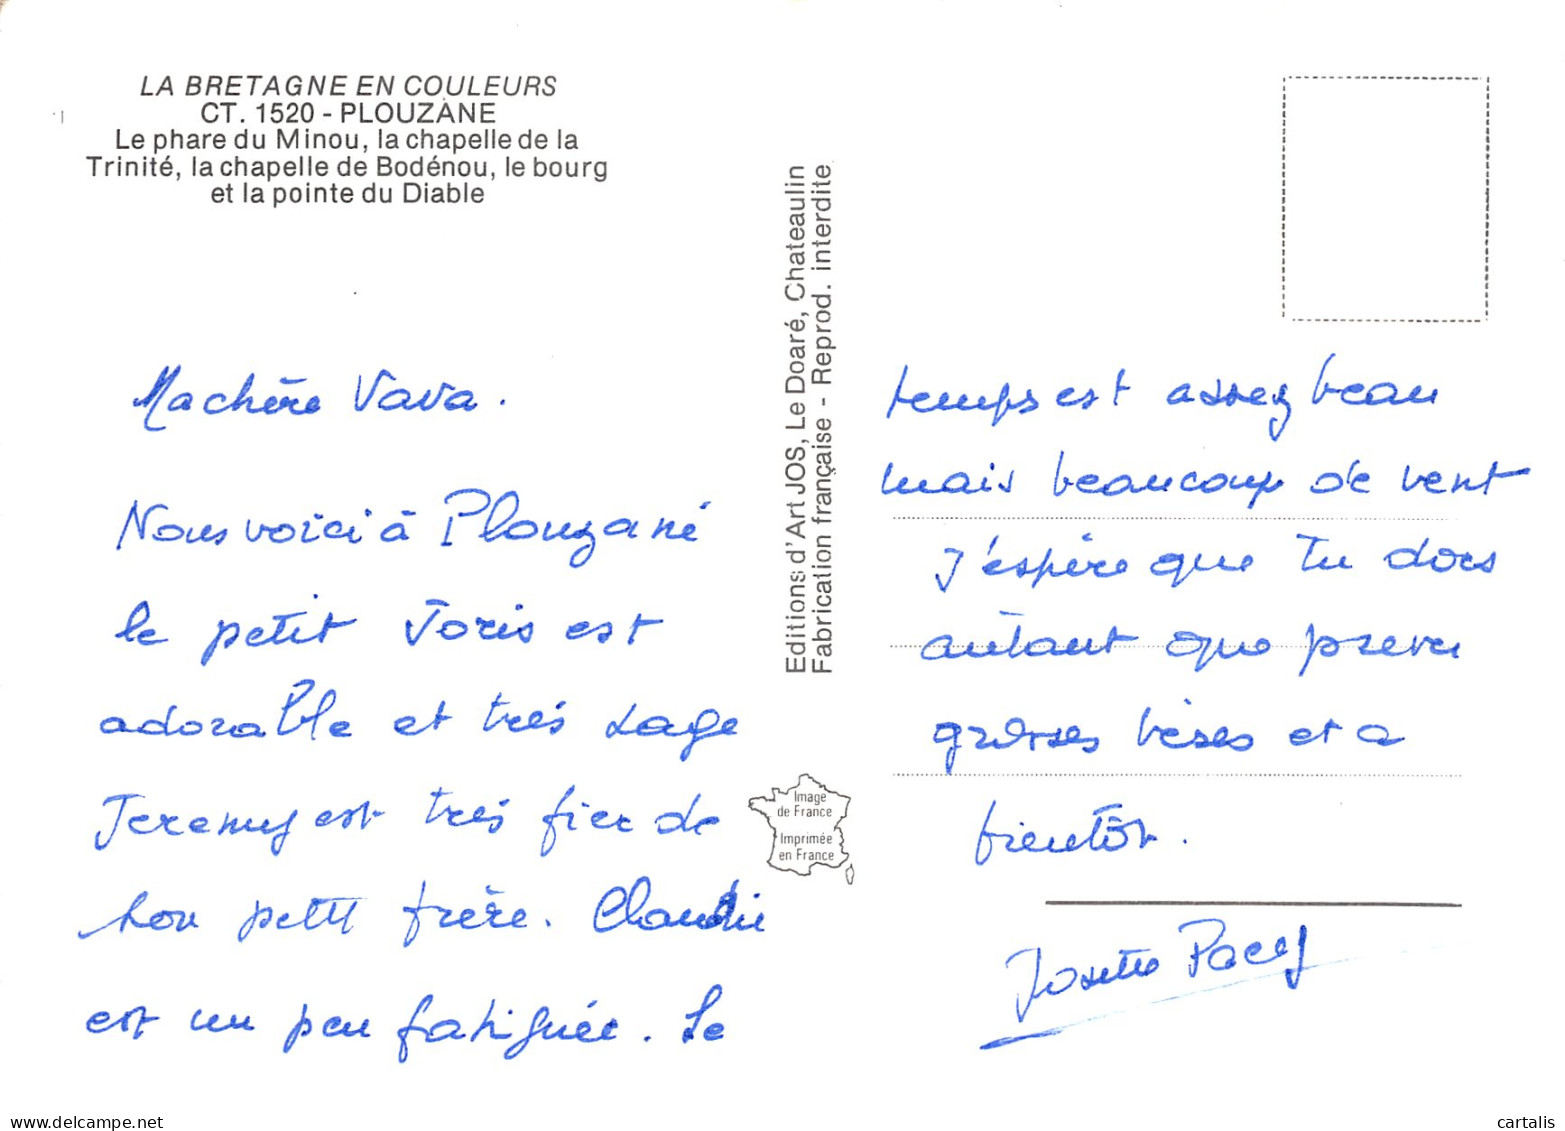 LA BRETAGNE EN COULEURS
CT. 1520 - PLOUZANE
Le phare du Minou, la chapelle de la
Trinité, la chapelle de Bodénou, le bourg
et la pointe du Diable
Ma chère Vava.
Nous voici à Plouzané
le petit Joris est
adorable et très sage
Jeremy est très fier de
son petit frère. Claudie
est un peu fatiguée. Le
Editions d'Art JOS, Le Doaré, Chateaulin
Fabrication française - Reprod. interdite
Image
de France
Imprimée
en France
temps est assez beau
mais beaucoup de vent
J'espère que Tu dors
autant que
grosses bises et a
bientôt.
Josette Pacey
cartalis
www.delcampe.net